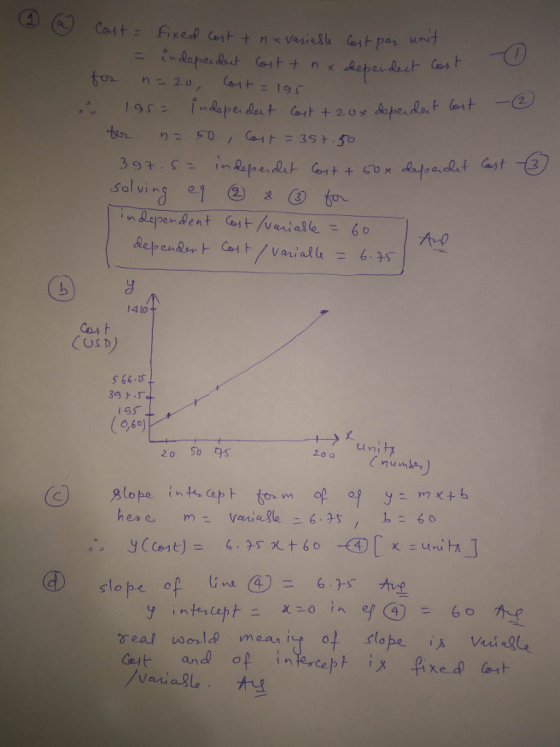 1 a Cost = fixed cost + n × variable cost per unit
= independent cost + n × dependent cost — 1
for n = 20, cost = 195
∴ 195 = independent cost + 20 × dependent cost — 2
for n = 50, cost = 397.50
397.5 = independent cost + 50 × dependent cost — 3
solving eq 2 & 3 for
independent cost/variable = 60
dependent cost/variable = 6.75
Ans
b
y
1410
Cost
(USD)
566.25
397.5
195
(0,60)
20 50 75 200
x
units
(number)
c slope intercept form of eq y = mx + b
here m = variable = 6.75, b = 60
∴ y(cost) = 6.75x + 60 — 4 [x = units]
d slope of line 4 = 6.75 Ans
y intercept = x=0 in eq 4 = 60 Ans
real world meaning of slope is variable
cost and of intercept is fixed cost
/variable. Ans